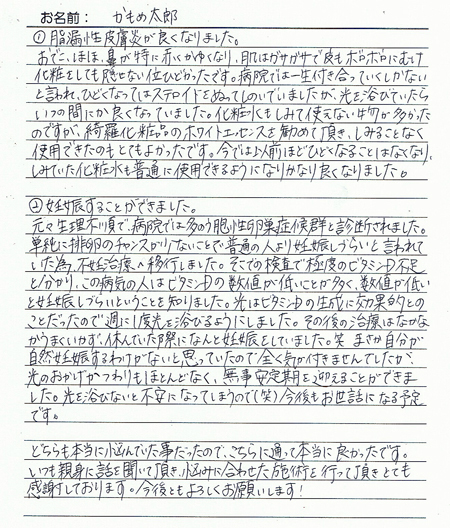 お名前： かもめ太郎
①脂漏性皮膚炎が良くなりました。
おでこ、ほほ、鼻が特に赤くかゆくなり、肌はガサガサで皮もボロボロにむけ
化粧をしても隠せない位ひどかったです。病院では一生付き合っていくしかない
と言われ、ひどくなってはステロイドをぬってしのいでいましたが、光を浴びていたら
いつの間にか良くなっていました。化粧水もしみて使えない物が多かった
のですが、綺羅化粧品のホワイトエッセンスを勧めて頂き、しみることなく
使用できたのもとてもよかったです。今では以前ほどひどくなることはなくなり、
しみていた化粧水も普通に使用できるようになりかなり良くなりました。
②妊娠することができました。
元々生理不順で、病院では多のう胞性卵巣症候群と診断されました。
単純に排卵のチャンスが少ないことで普通の人より妊娠しづらいと言われて
いた為、不妊治療へ移行しました。そこでの検査で極度のビタミンD不足
と分かり、この病気の人はビタミンDの数値が低いことが多く、数値が低い
と妊娠しづらいということを知りました。光はビタミンDの生成に効果的との
ことだったので週に1度光を浴びるようにしました。その後の治療はなかな
かうまくいかず、休んでいた際になんと妊娠としていました。笑 まさか自分が
自然妊娠するわけがないと思っていたので全く気が付きませんでしたが、
光のおかげかつわりもほとんどなく、無事安定期を迎えることができま
した。光を浴びないと不安になってしまうので(笑)今後もお世話になる予定
です。
どちらも本当に悩んでいた事だったので、こちらに通って本当に良かったです。
いつも親身に話を聞いて頂き、悩みに合わせた施術を行って頂きとても
感謝しております。今後ともよろしくお願いします！